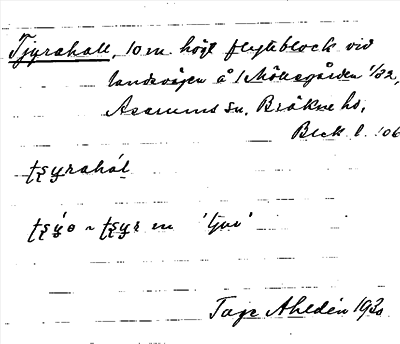 Tjyrahall, 10 m. högt flyttblock vid
landsvägen å Möllegården 1/32,
Asarums sn, Bräkne hd,
Blek. l. 106
tʂyrahál
~ tʂyr m 'tjur'
Tage Ahldén 1930